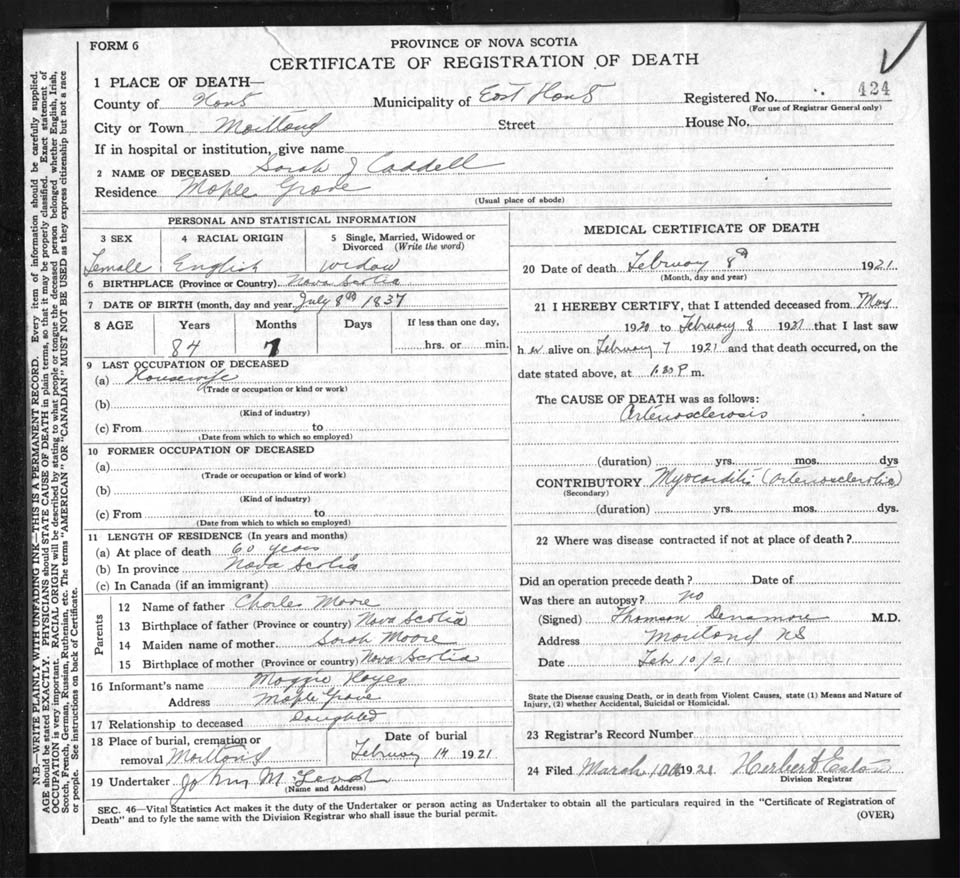 FORM 6
PROVINCE OF NOVA SCOTIA
CERTIFICATE OF REGISTRATION OF DEATH
1 PLACE OF DEATH—
County of Hants Municipality of East Hants Registered No. 424
(For use of Registrar General only)
City or Town Maitland Street House No.
If in hospital or institution, give name
2 NAME OF DECEASED Sarah J Caddell
Residence Maple Grove
(Usual place of abode)
PERSONAL AND STATISTICAL INFORMATION
3 SEX 4 RACIAL ORIGIN 5 Single, Married, Widowed or Divorced (Write the word)
Female English Widow
6 BIRTHPLACE (Province or Country) Nova Scotia
7 DATE OF BIRTH (month, day and year) July 8th 1837
8 AGE Years Months Days If less than one day,
84 7 hrs. or min.
9 LAST OCCUPATION OF DECEASED
(a) Housewife
(Trade or occupation or kind or work)
(b)
(Kind of industry)
(c) From to
(Date from which to which so employed)
10 FORMER OCCUPATION OF DECEASED
(a)
(Trade or occupation or kind of work)
(b)
(Kind of industry)
(c) From to
(Date from which to which so employed)
11 LENGTH OF RESIDENCE (In years and months)
(a) At place of death 60 years
(b) In province Nova Scotia
(c) In Canada (if an immigrant)
Parents
12 Name of father Charles Moore
13 Birthplace of father (Province or country) Nova Scotia
14 Maiden name of mother Sarah Moore
15 Birthplace of mother (Province or country) Nova Scotia
16 Informant's name Maggie Hayes
Address Maple Grove
17 Relationship to deceased Daughter
18 Place of burial, cremation or removal Maitland
Date of burial
February 14 1921
19 Undertaker John M
(Name and Address)
MEDICAL CERTIFICATE OF DEATH
20 Date of death February 8th 1921
(Month, day and year)
21 I HEREBY CERTIFY, that I attended deceased from May
1920 to February 8 1921 that I last saw
her alive on February 7 1921 and that death occurred, on the
date stated above, at P m.
The CAUSE OF DEATH was as follows:
Arteriosclerosis
(duration) yrs. mos. dys
CONTRIBUTORY Myocarditis (Arteriosclerotic)
(Secondary)
(duration) yrs. mos. dys.
22 Where was disease contracted if not at place of death?
Did an operation precede death? Date of
Was there an autopsy? no
(Signed) Thomson M.D.
Address Maitland NS
Date Feb 10/21
State the Disease causing Death, or in death from Violent Causes, state (1) Means and Nature of
Injury, (2) whether Accidental, Suicidal or Homicidal.
23 Registrar's Record Number
24 Filed March 10th 1921 Herbert Eaton
Division Registrar
SEC. 46—Vital Statistics Act makes it the duty of the Undertaker or person acting as Undertaker to obtain all the particulars required in the "Certificate of Registration of
Death" and to fyle the same with the Division Registrar who shall issue the burial permit.
(OVER)
N.B.—WRITE PLAINLY WITH UNFADING INK—THIS IS A PERMANENT RECORD. Every item of information should be carefully supplied.
AGE should be stated EXACTLY. PHYSICIANS should STATE CAUSE OF DEATH in plain terms, so that it may be properly classified. Exact statement of
OCCUPATION is very important. RACIAL ORIGIN will be described by stating to what people or tongue the deceased person belonged whether English, Irish,
Scotch, French, German, Russian, Ruthenian, etc. The terms "AMERICAN" OR "CANADIAN" MUST NOT BE USED as they express citizenship but not a race
or people. See instructions on back of Certificate.